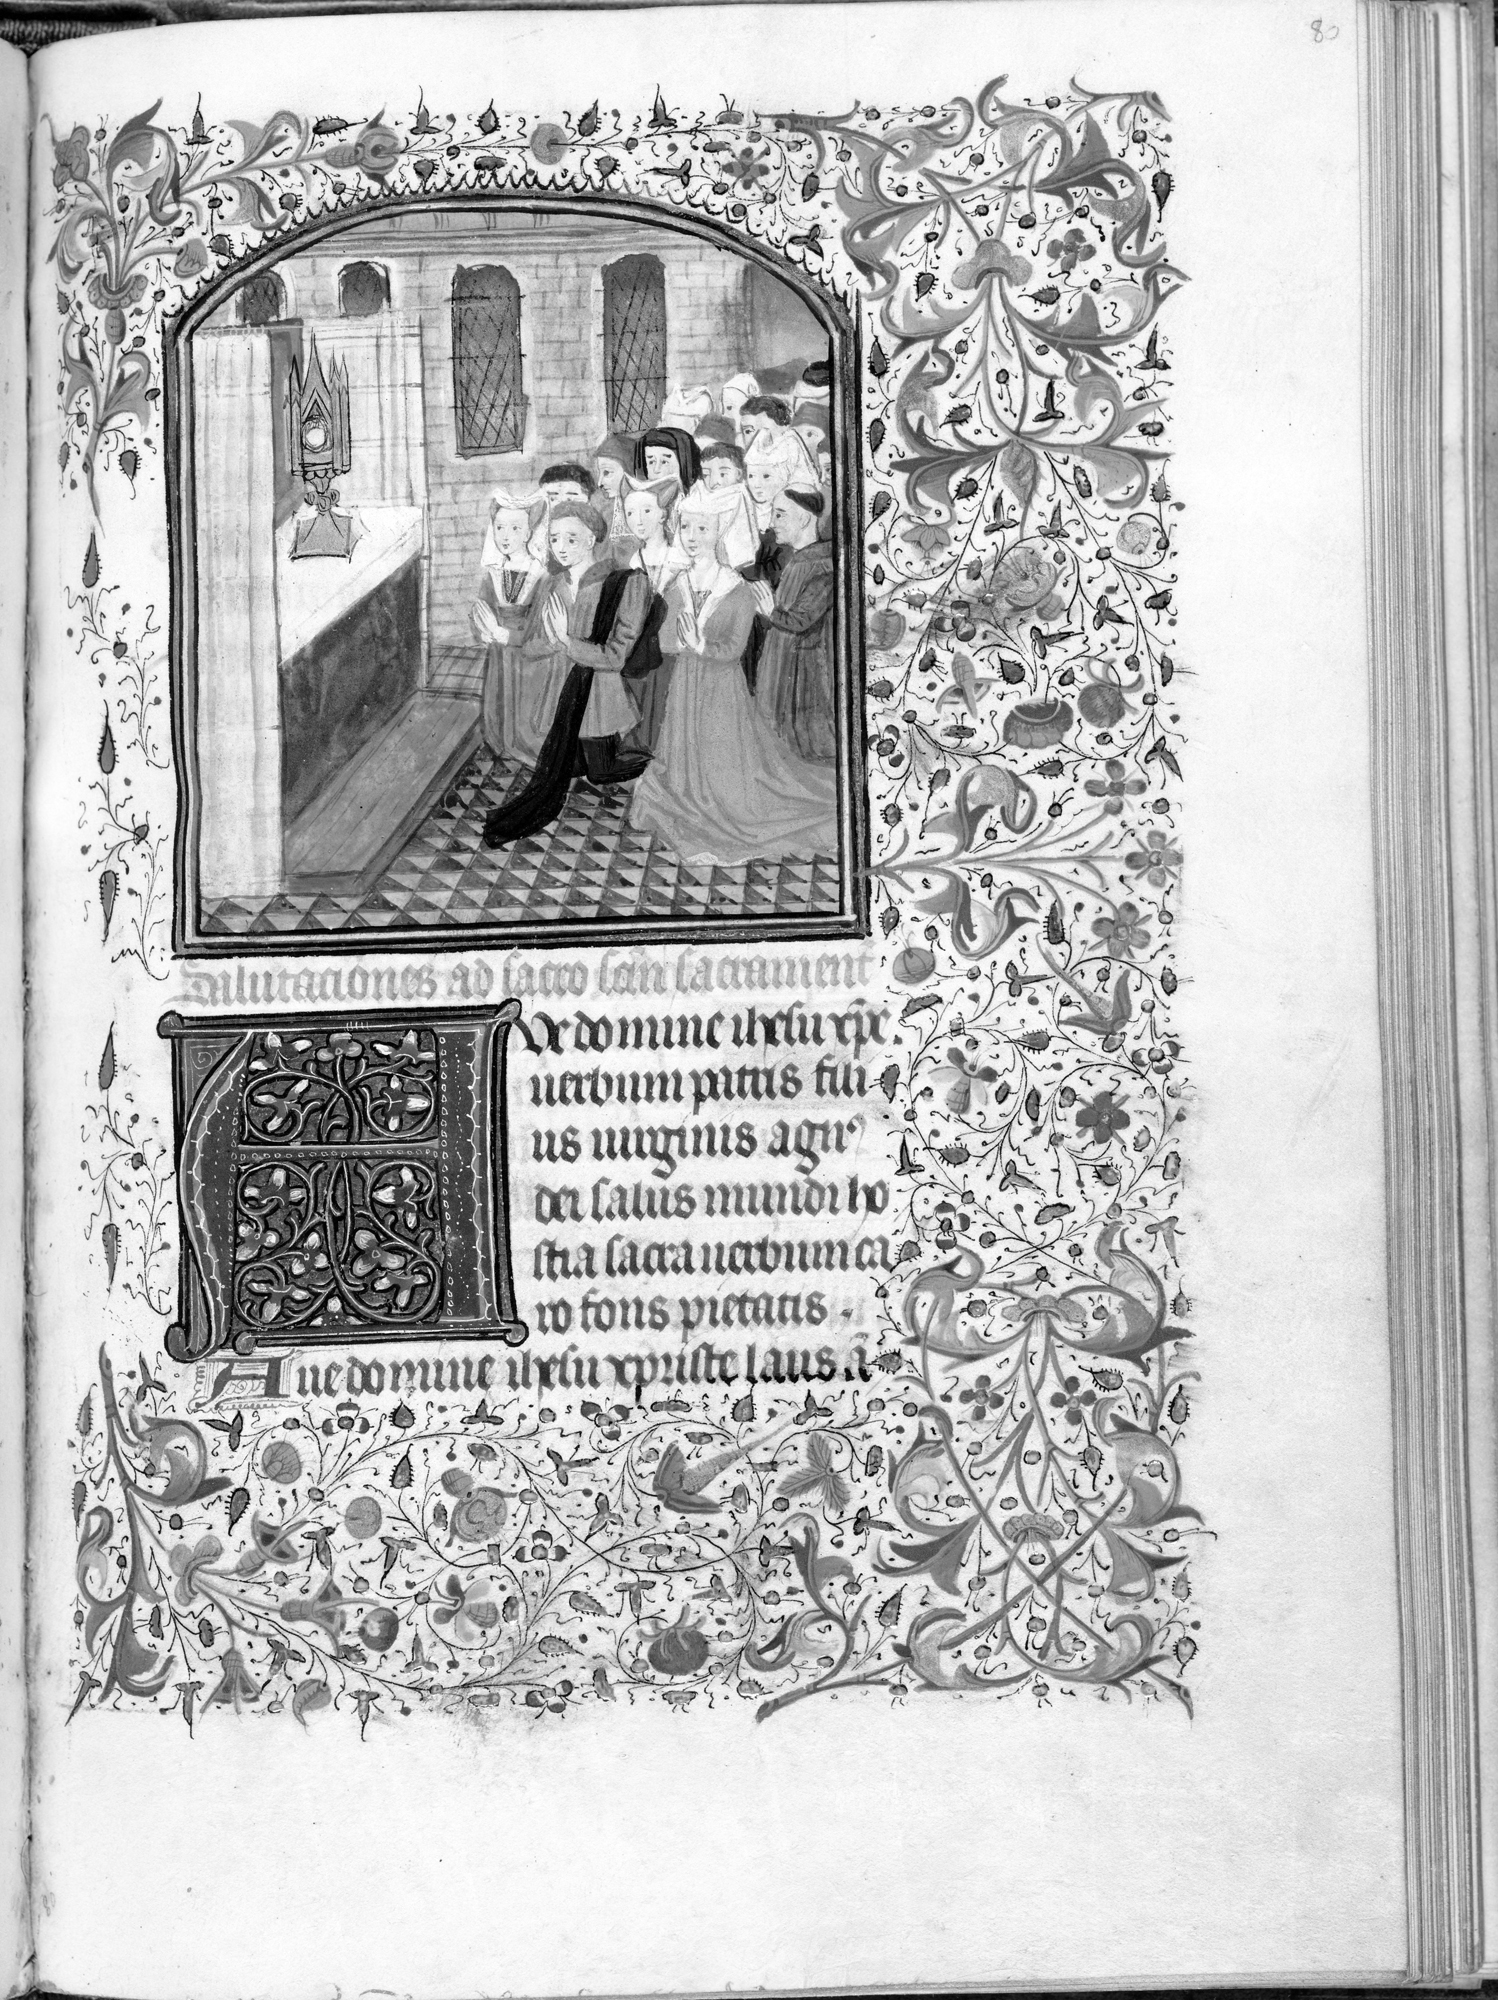 80
Salutaciones ad sacro scm̄ sacrament
AVe domine ihesu xp̄e.
uerbum patris fili
us uirginis agnꝰ
dei salus mundi ho
stia sacra uerbum ca
ro fons pietatis.
Aue domine ihesu xpriste laus ā